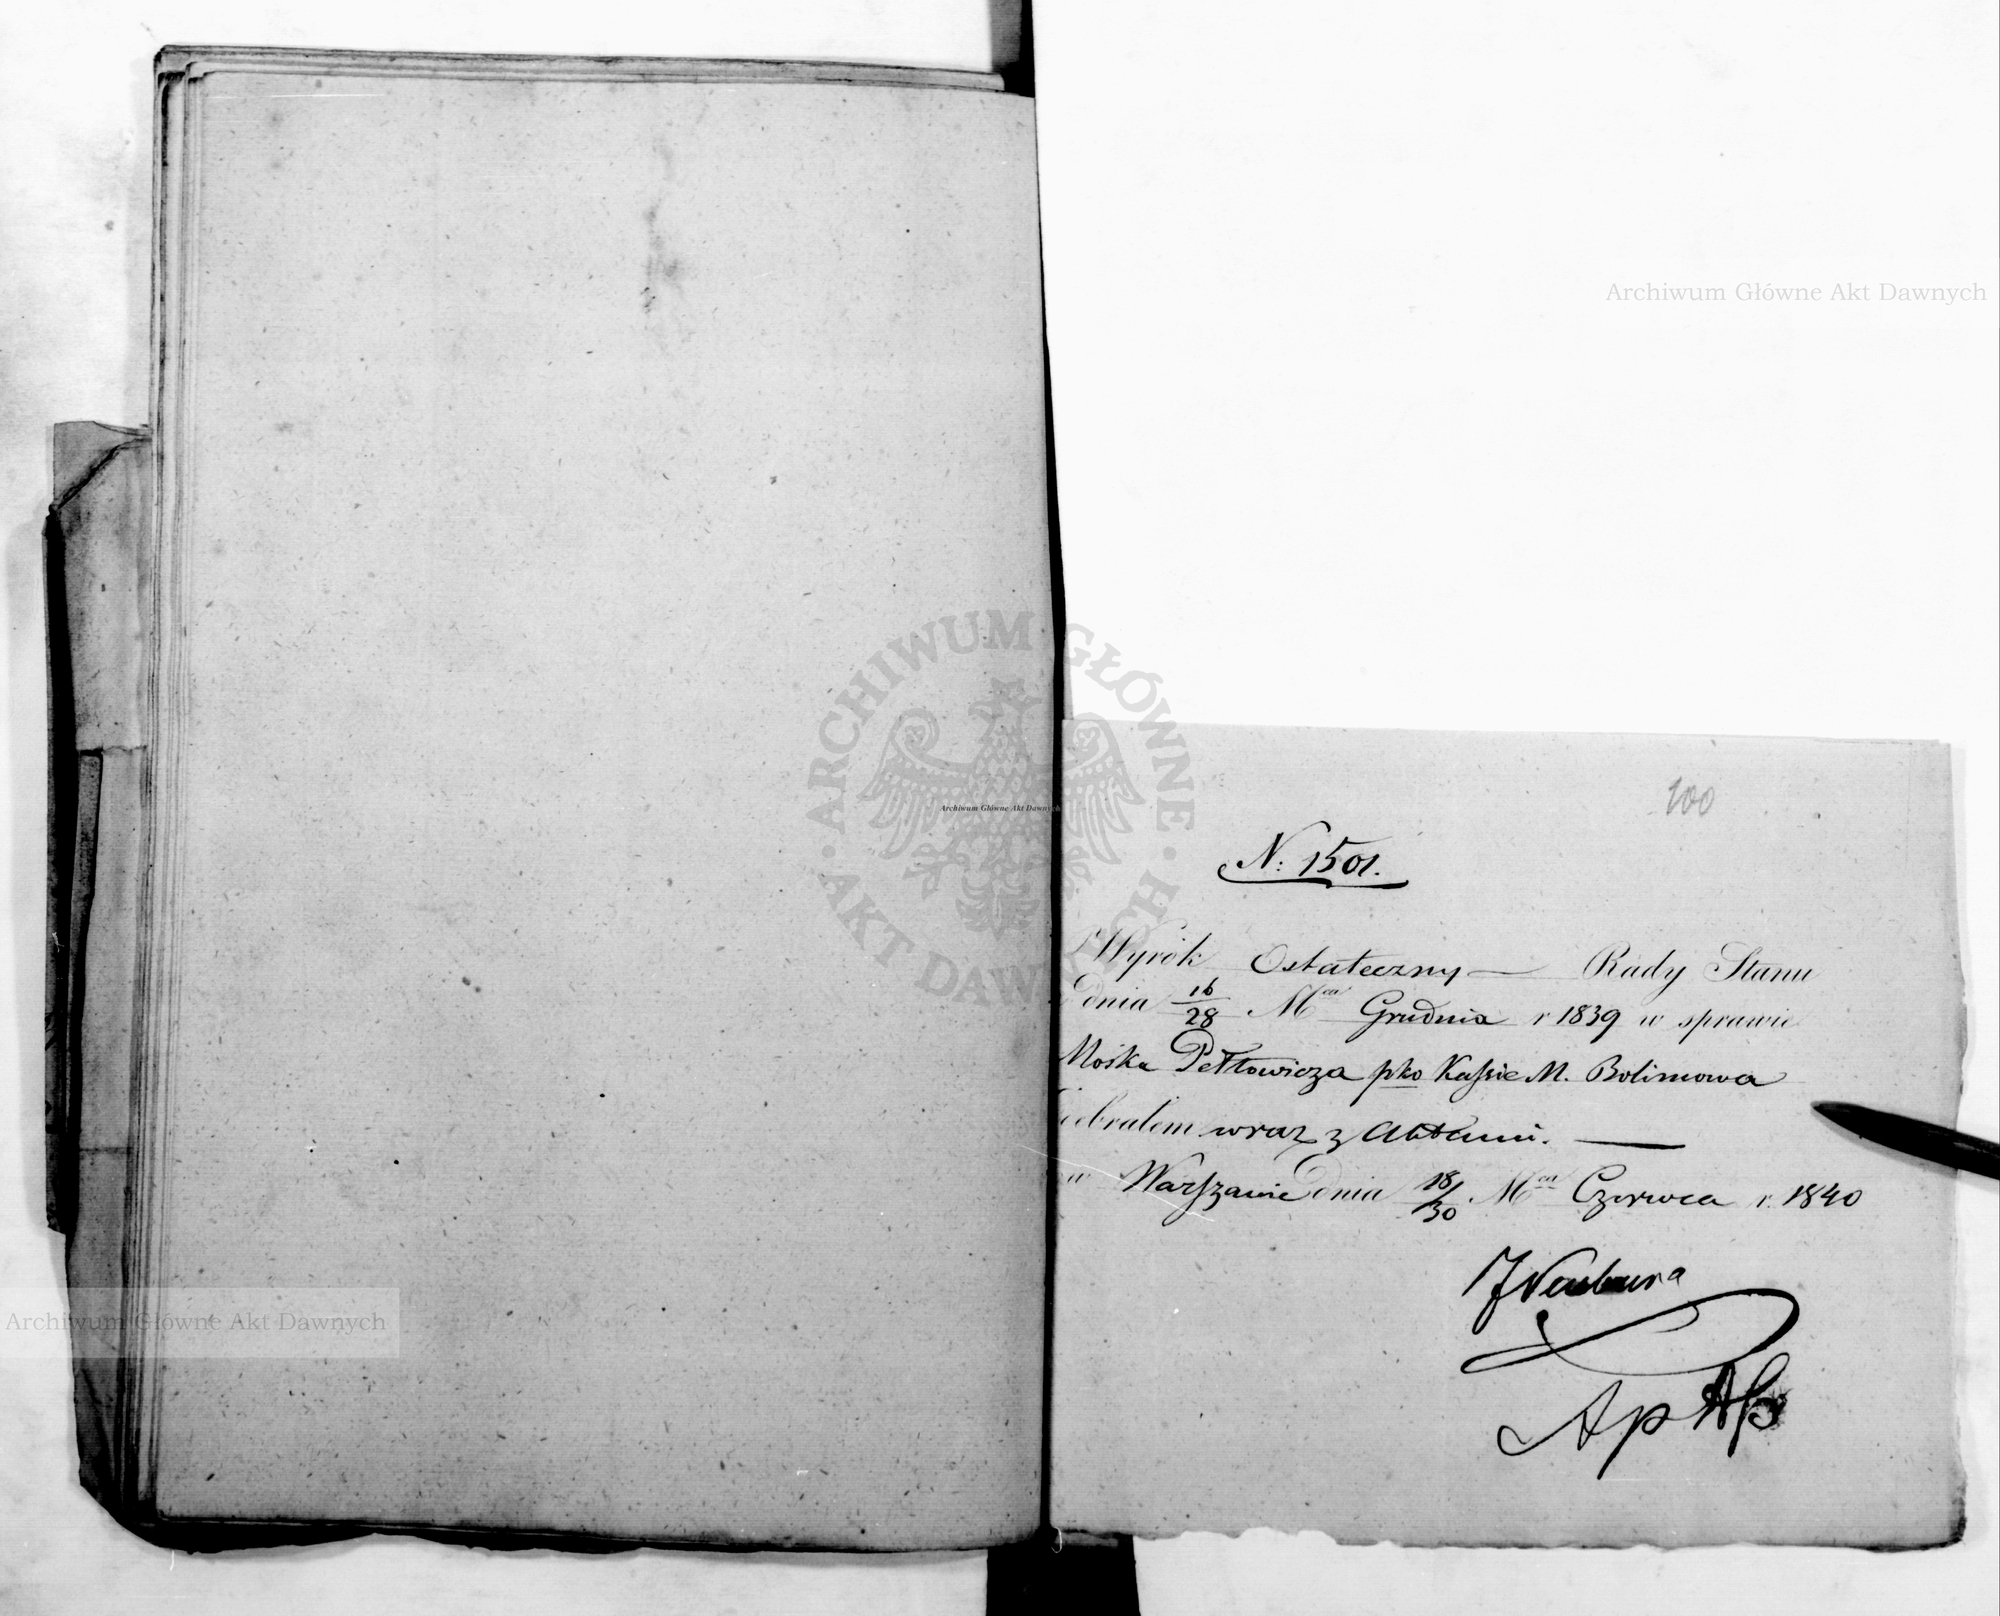 Archiwum Główne Akt Dawnych
ARCHIWUM GŁÓWNE AKT DAWNYCH
Archiwum Główne Akt Dawnych
100
N: 1501.
Wyrók Ostateczny — Rady Stanu
dnia 16/28 Mca Grudnia r 1839 w sprawie
Mośka Pettowicza pko Kassie M. Bolimowa
odebrałem wraz z Aktami. —
w Warszawie dnia 18/30 Mca Czerwca r. 1840
Archiwum Główne Akt Dawnych